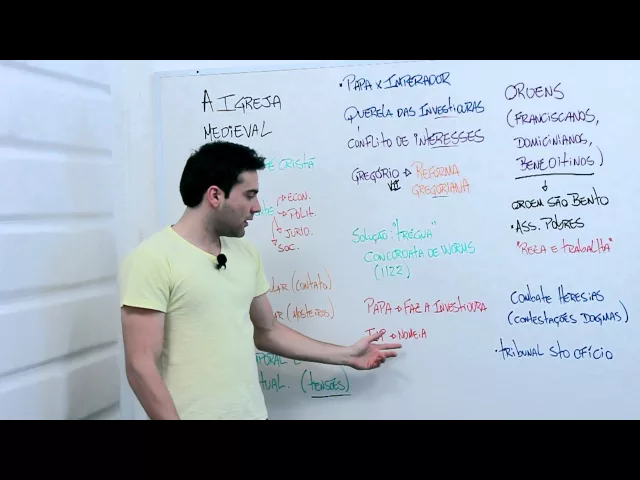 A IGREJA
MEDIEVAL
CRISTÃ
ECON.
POLIT.
JURID.
SOC.
(CONTATO)
(MOSTEIROS)
(TENSÕES)
• PAPA X IMPERADOR
QUERELA DAS INVESTIDURAS
CONFLITO DE INTERESSES
GREGÓRIO → REFORMA
VII GREGORIANA
SOLUÇÃO: "TRÉGUA"
CONCORDATA DE WORMS
(1122)
PAPA → FAZ A INVESTIDURA
IMP → NOMEIA
ORDENS
(FRANCISCANOS,
DOMICINIANOS,
BENEDITINOS)
ORDEM SÃO BENTO
• ASS. POBRES
"REZA E TRABALHA"
COMBATE HERESIAS
(CONTESTAÇÕES DOGMAS)
• TRIBUNAL STO OFÍCIO